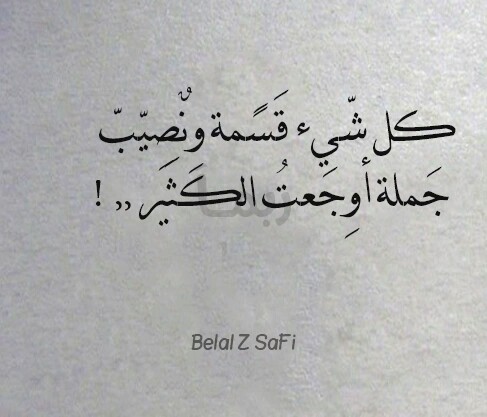 كل شّيء قَسًمة ونٌصِيّبّ
جَملة أوِجَعتُ الكَثيَر ,, !
Belal Z SaFi